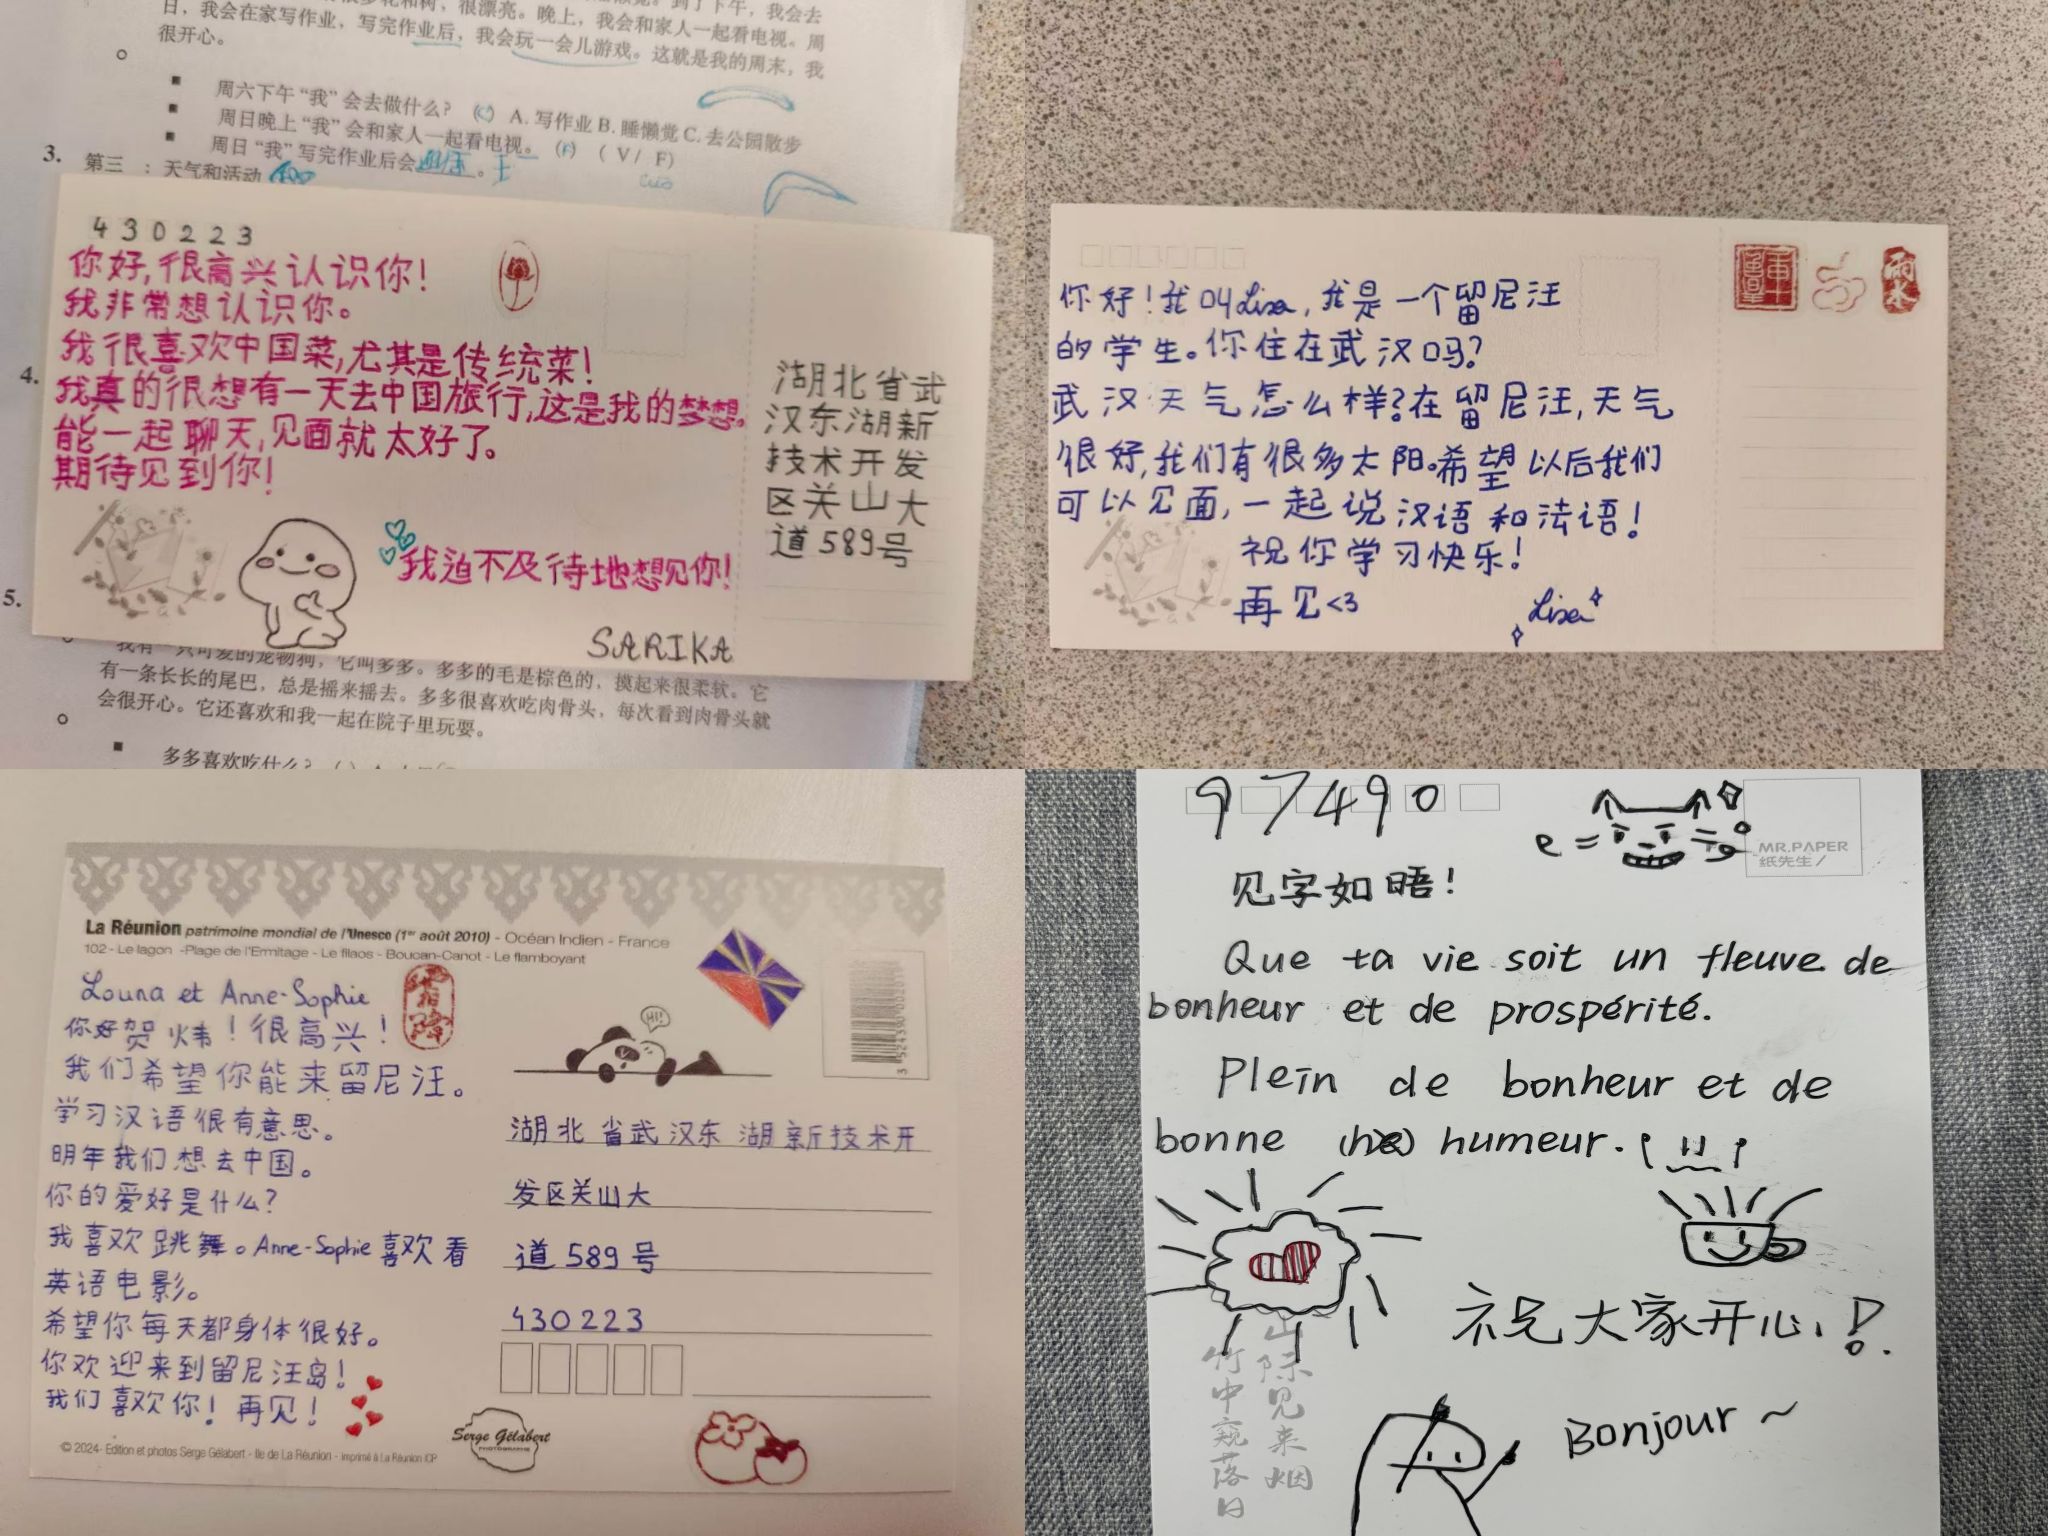 日，我会在家写作业，写完作业后，我会玩一会儿游戏。这就是我的周末，我
很开心。
周六下午“我”会去做什么？ (C) A. 写作业 B. 睡懒觉 C. 去公园散步
周日晚上“我”会和家人一起看电视。 (F) ( V / F)
周日“我”写完作业后会
3. 第三 ：天气和活动
4.
430223
你好,很高兴认识你!
我非常想认识你。
我很喜欢中国菜,尤其是传统菜!
我真的很想有一天去中国旅行,这是我的梦想。
能一起聊天,见面就太好了。
期待见到你!
我迫不及待地想见你!
SARIKA
湖北省武
汉东湖新
技术开发
区关山大
道589号
5.
我有一只可爱的宠物狗，它叫多多。多多的毛是棕色的，摸起来很柔软。它
有一条长长的尾巴，总是摇来摇去。多多很喜欢吃肉骨头，每次看到肉骨头就
会很开心。它还喜欢和我一起在院子里玩耍。
多多喜欢吃什么？
你好!我叫Lisa,我是一个留尼汪
的学生。你住在武汉吗?
武汉天气怎么样?在留尼汪,天气
很好,我们有很多太阳。希望以后我们
可以见面,一起说汉语和法语!
祝你学习快乐!
再见<3
Lisa
雨水
La Réunion patrimoine mondial de l'Unesco (1er août 2010) - Océan Indien - France
102 - Le lagon -Plage de l'Ermitage - Le filaos - Boucan-Canot - Le flamboyant
Louna et Anne-Sophie
霜降
你好贺炜!很高兴!
我们希望你能来留尼汪。
学习汉语很有意思。
明年我们想去中国。
你的爱好是什么?
我喜欢跳舞。Anne-Sophie喜欢看
英语电影。
希望你每天都身体很好。
你欢迎来到留尼汪岛!
我们喜欢你!再见!
HI!
湖北省武汉东湖新技术开
发区关山大
道589号
430223
Serge Gélabert
PHOTOGRAPHE
© 2024- Edition et photos Serge Gélabert - Ile de La Réunion - imprimé à La Réunion ICP
97490
MR.PAPER
纸先生/
见字如晤!
Que ta vie soit un fleuve de
bonheur et de prospérité.
Plein de bonheur et de
bonne humeur.
祝大家开心!
Bonjour ~
山际见来烟
竹中窥落日